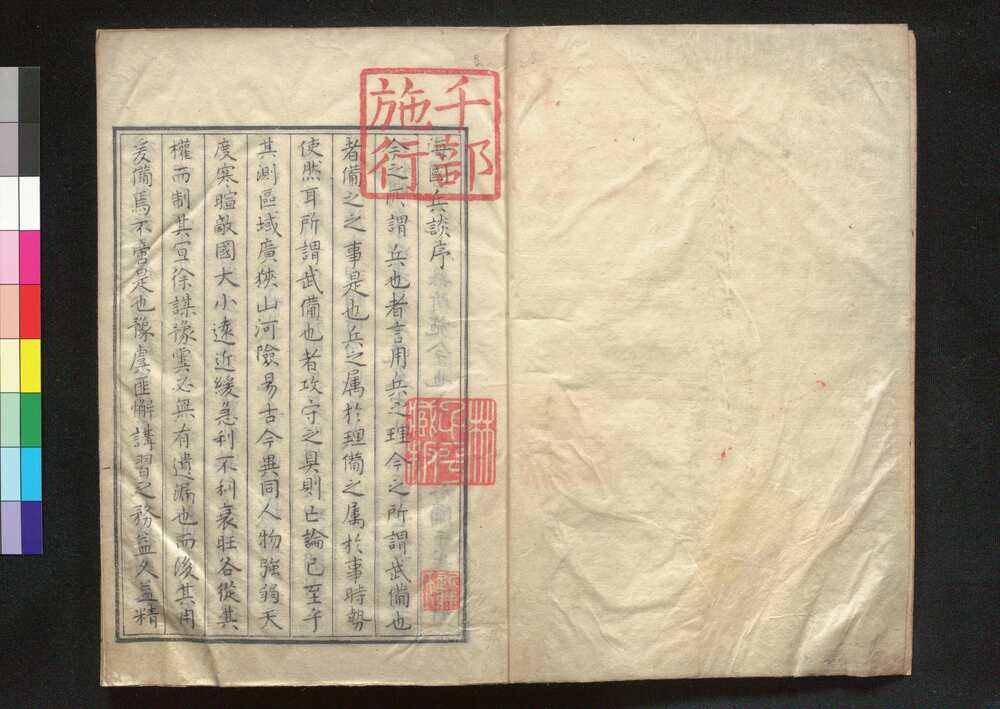 千部
施行
海國兵談序
今之所謂兵也者言用兵之理今之所謂武備也
者備之之事是也兵之属於理備之属於事時勢
使然耳所謂武備也者攻守之具則已論已至乎
其測區域廣狹山河險易古今異同人物強弱天
度寒暄敵國大小遠近緩急利不利衰旺各從其
權而制其宜徐謀豫実必無有遺漏也而後其用
爰備焉不啻是也豫虞匪懈講習之務益久益精